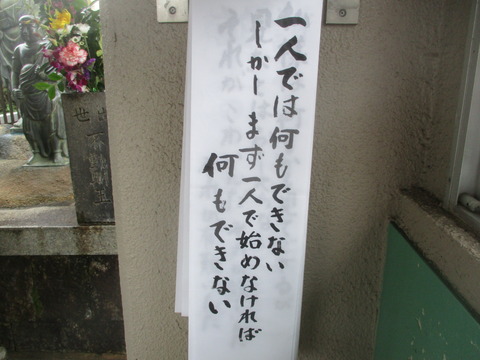 一人では何もできない
しかし まず一人で始めなければ
何もできない